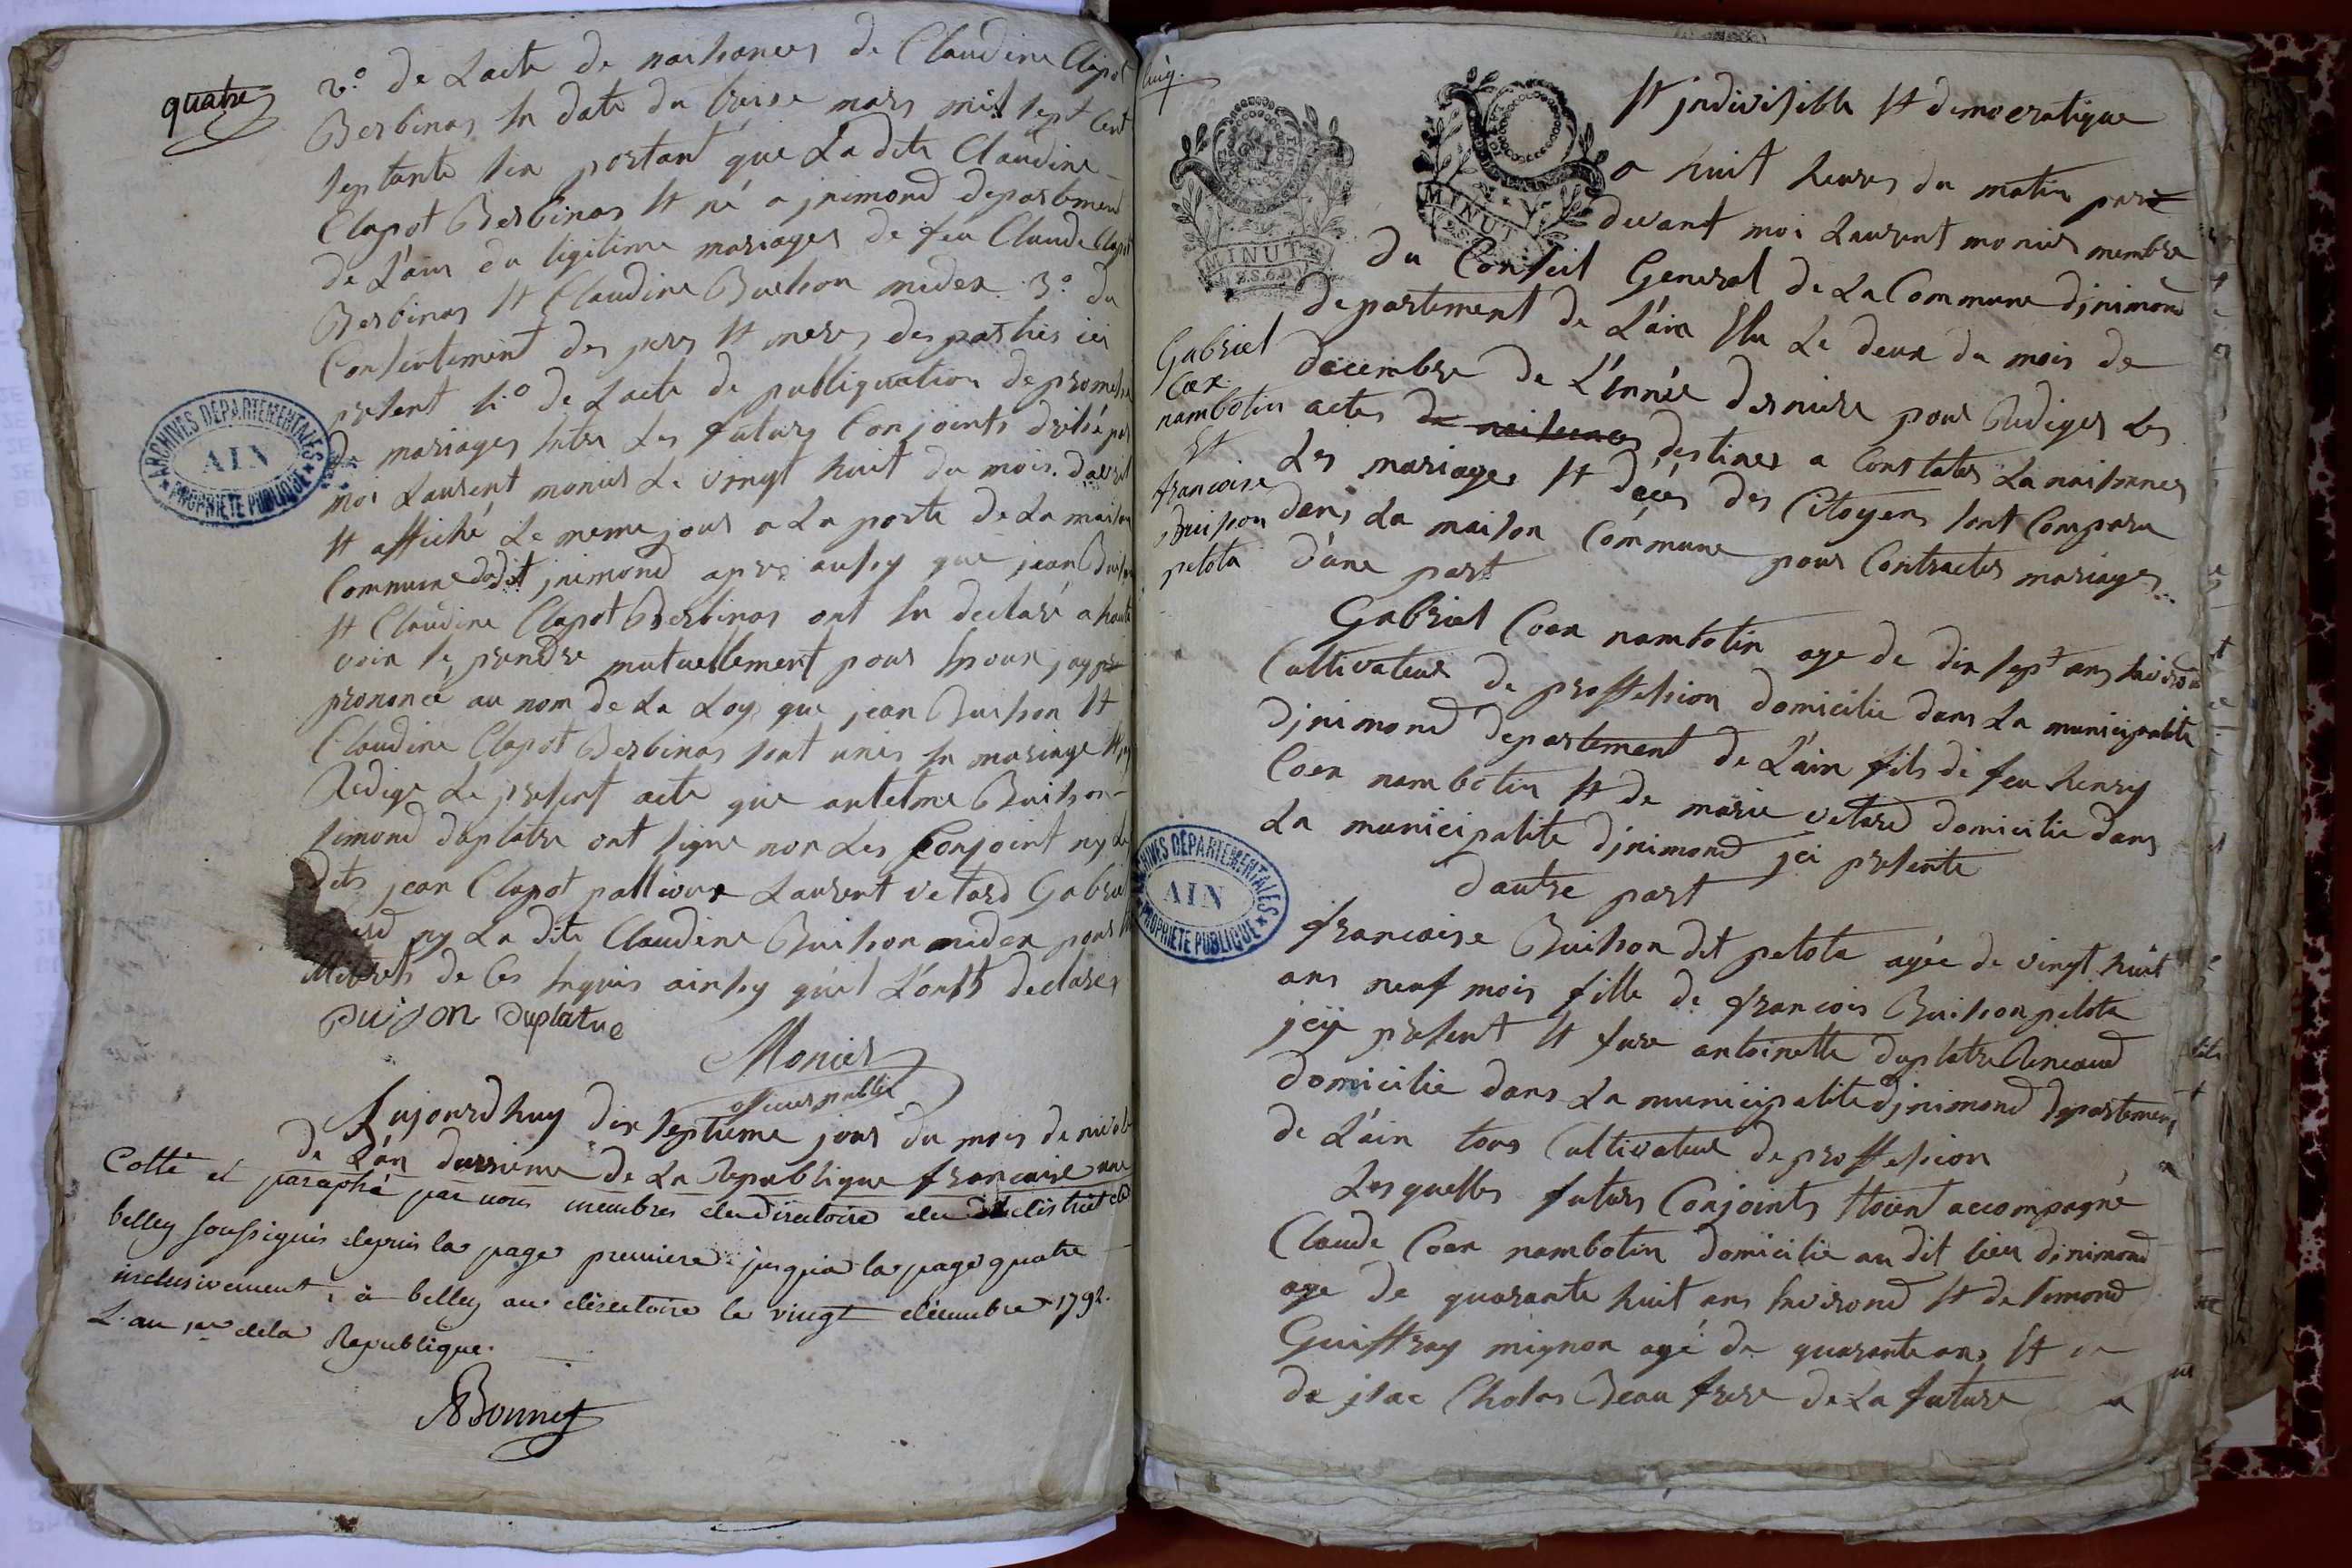 quatre
2.º de Lacte de naissances de Claudine Clapot
Berbinas En date du treise mars mil sept Cent
septante six portant que La dite Claudine
Clapot Berbinas Et né a jnimond departement
de L'ain du ligitime mariages de feu Claude Clapot
Berbinas Et Claudine Buisson midex 3.º du
Consentement des peres Et meres des parties ici
present 4.º de Lacte de publiquation de promesse
de mariages Entre Les futurs Conjoints dréssé par
moi Laurent monier Le vingt huit du mois d'avril
Et affiché Le meme jour a La porte de La maison
Commune dudit jnimond apres aussy que jean Buisson
Et Claudine Clapot Berbinas ont En declaré a haute
voix se prendre mutuellement pour Epoux jay
prononcé au nom de La Loy que jean Buisson Et
Claudine Clapot Berbinas sont unis En mariage Et jay
Redige Le present acte que antelme Buisson
simond duplatre ont signe non Les Conjoint ny Les
dits jean Clapot pallioux Laurent vetard Gabriel
ny La dite Claudine Buisson midex pour
de Ces Enquis ainsy qu'il L'ont declares
Buison Duplatre
Monier
officier public
Aujourdhuy dix septieme jour du mois de
de L'an deuxieme de La Republique francaise une
Cotté et paraphé par nous membres du directoire du district de
belley soussignés depuis la page premiere jusqu'a la page quatre
inclusivement, à belley au directoire le vingt décembre 1792.
L'an 1er de la Republique.
Bonnet
ARCHIVES DÉPARTEMENTALES
AIN
PROPRIÉTÉ PUBLIQUE
cinq.
MINUT
MINUT
Et jndivisible Et democratique
a huit heures du matin par
devant moi Laurent monier membre
du Conseil General de La Commune djnimond
departement de L'ain Elu Le deux du mois de
decembre de L'année derniere pour Rediger Les
actes de naissances destines a Constater La naissances
Les mariages Et décés des Citoyens sont Comparu
dans La maison Commune pour Contracter mariages
d'une part
Gabriel
Coex
nambotin
Et
francoise
Buisson
pelota
Gabriel Coex nambotin age de dix sept ans Environ
Cultivateur de proffession domicilie dans La municipalite
djnimond departement de L'ain fils de feu henry
Coex nambotin Et de marie vetard domicilie dans
La municipalite djnimond jci presente
dautre part
francoise Buisson dit pelota agée de vingt huit
ans neuf mois fille de francois Buisson pelota
jcy present Et fuee antoinette duplatre Reneaud
domicilie dans La municipalite djnimond departement
de L'ain tous Cultivateur de proffession
Les quelles futurs Conjoints Etoient accompagné
Claude Coex nambotin domicilie au dit lieu djnimond
age de quarante huit ans Environd Et de simond
Guiffray mignon agé de quarante ans Et
de jsac Cholas Beau frere de La future
ARCHIVES DÉPARTEMENTALES
AIN
PROPRIÉTÉ PUBLIQUE